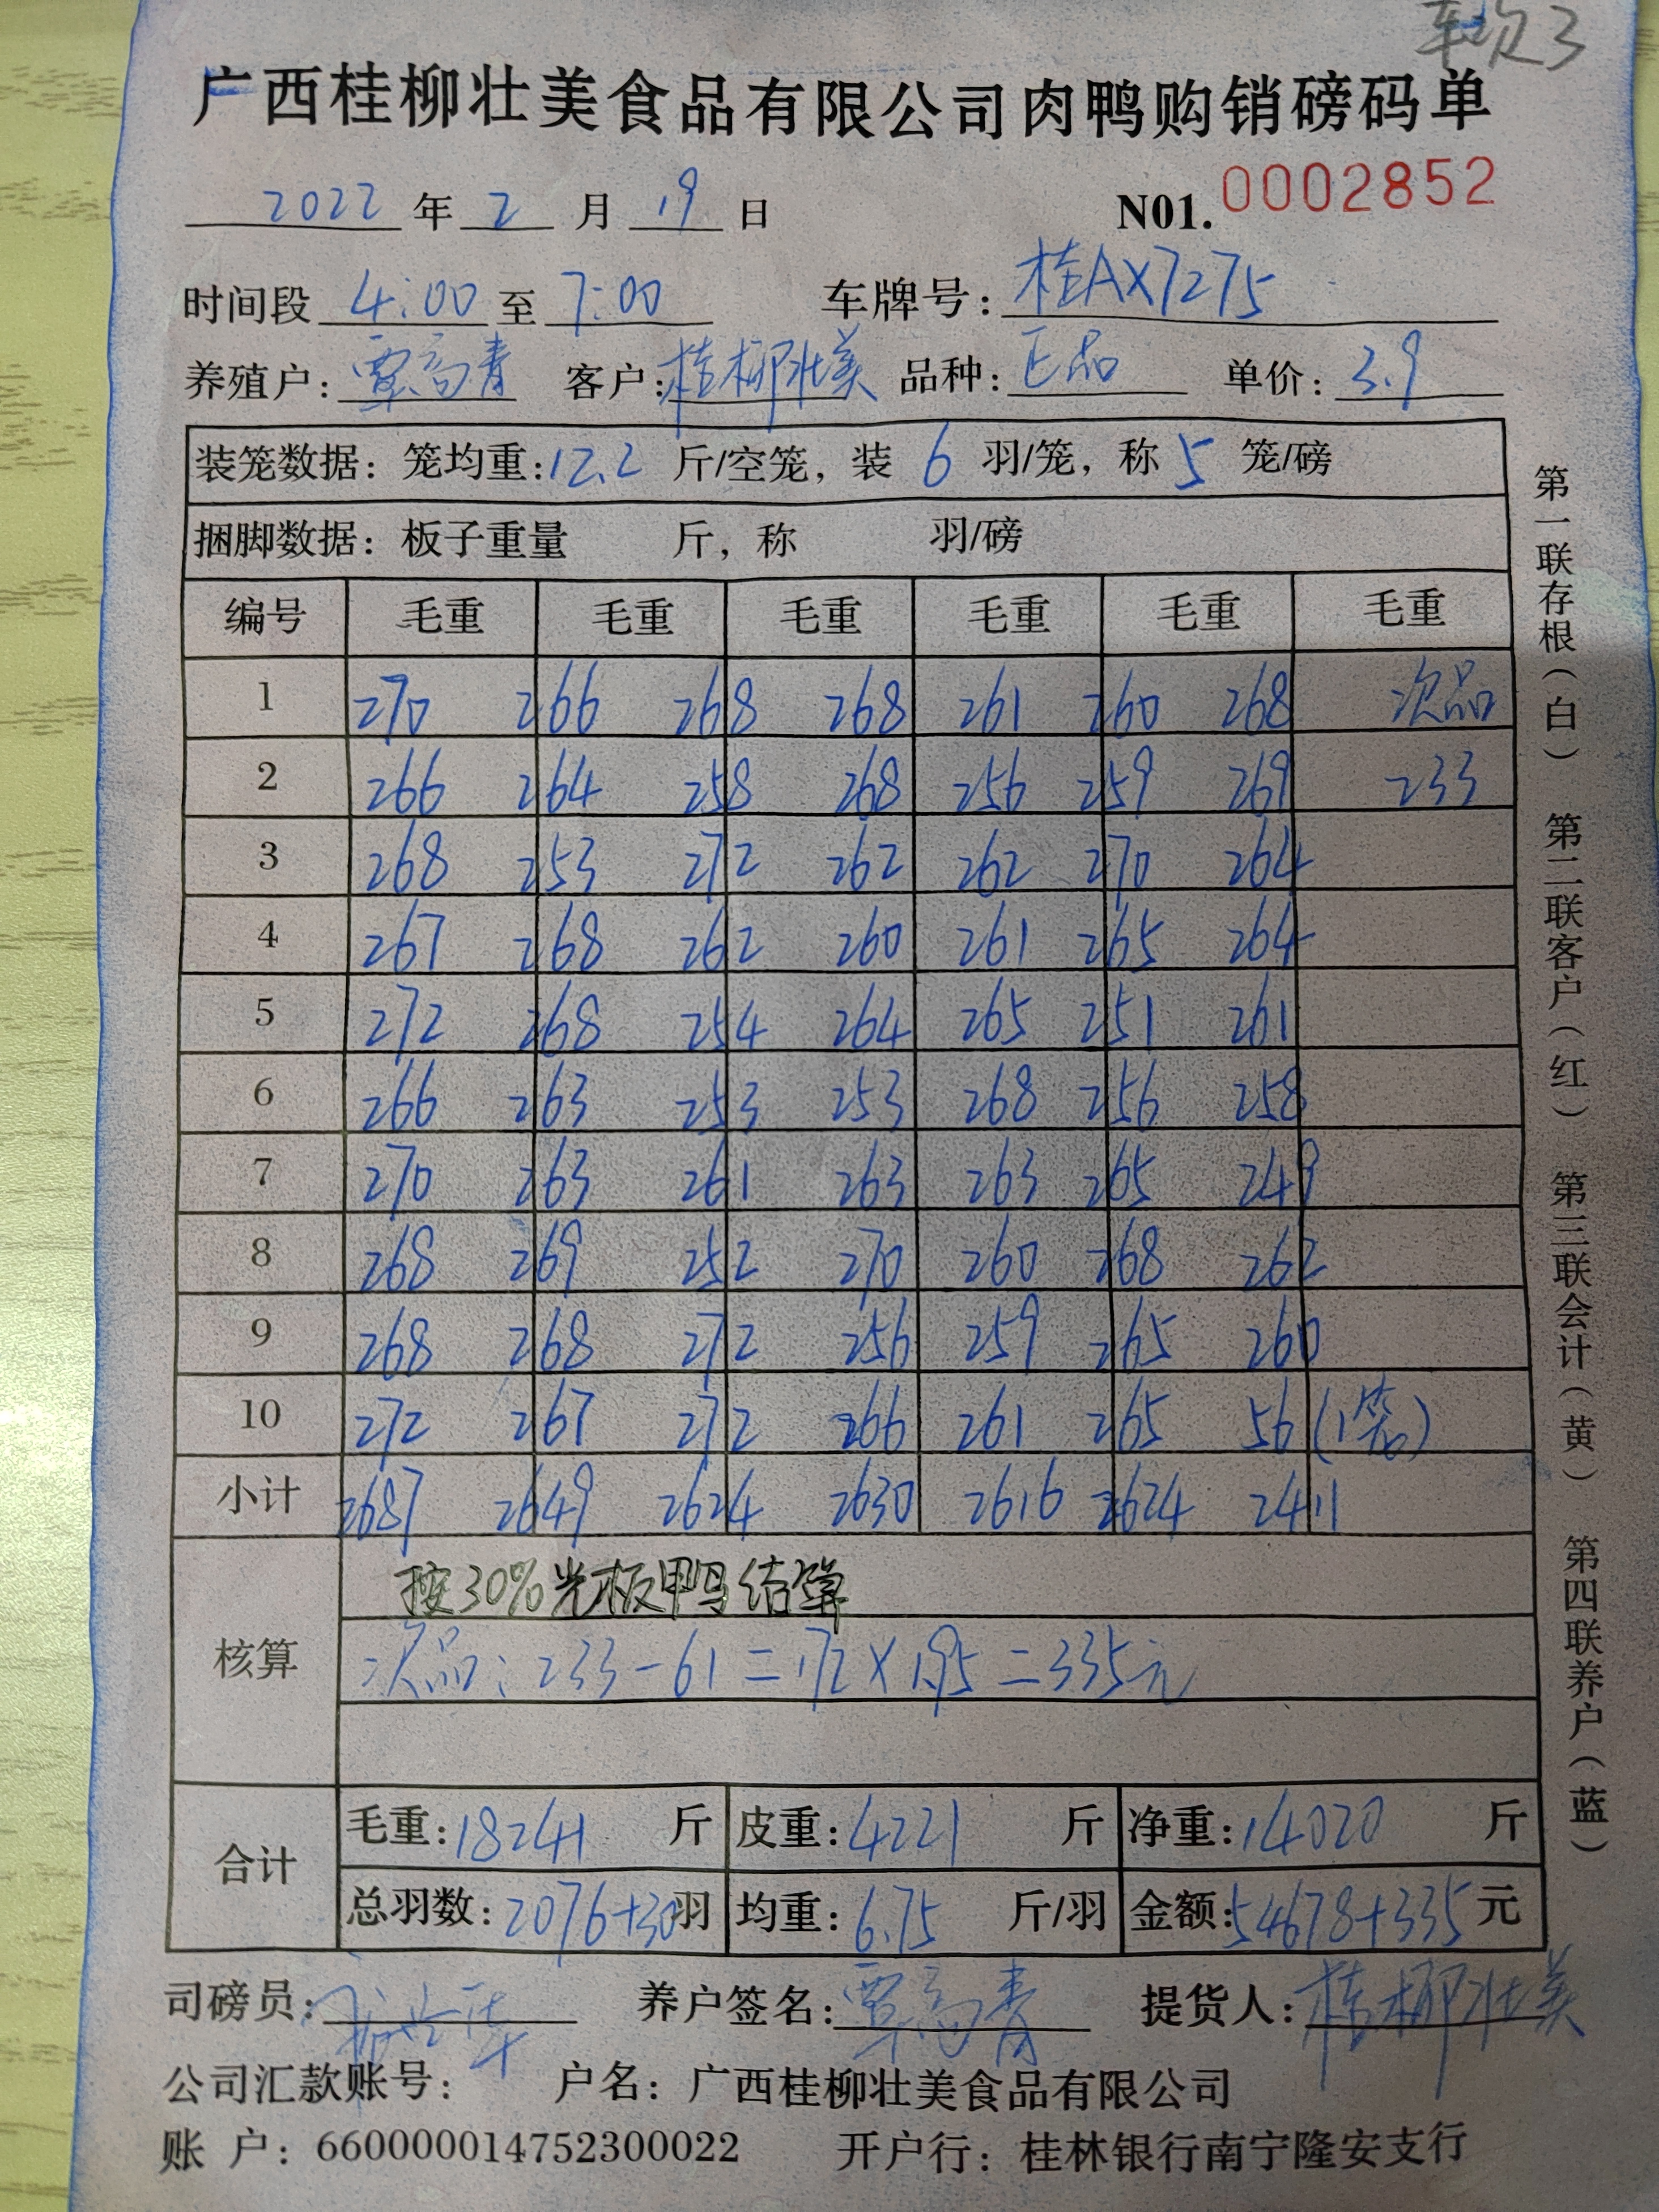 车次3
广西桂柳壮美食品有限公司肉鸭购销磅码单
2022 年 2 月 19 日 N01. 0002852
时间段 4:00 至 7:00 车牌号: 桂AX7275
养殖户: 覃高青 客户: 桂柳壮美 品种: 正品 单价: 3.9
装笼数据: 笼均重: 12.2 斤/空笼, 装 6 羽/笼, 称 5 笼/磅
捆脚数据: 板子重量 斤, 称 羽/磅
编号 毛重 毛重 毛重 毛重 毛重 毛重
1 270 266 268 268 261 260 268 次品
2 266 264 258 268 256 259 269 233
3 268 253 272 262 262 270 264
4 267 268 262 260 261 265 264
5 272 268 254 264 265 251 261
6 266 263 253 253 268 256 258
7 270 263 261 263 263 265 249
8 268 269 252 270 260 268 262
9 268 268 272 256 259 265 260
10 272 267 272 266 261 265 56 (1笼)
小计 2687 2649 2624 2630 2616 2624 2411
核算
按30%光板鸭结算
次品: 233-61=172×1.95=335元
合计
毛重: 18241 斤 皮重: 4221 斤 净重: 14020 斤
总羽数: 2076+30羽 均重: 6.75 斤/羽 金额: 54678+335 元
司磅员: 养户签名: 覃高青 提货人: 桂柳壮美
公司汇款账号: 户名: 广西桂柳壮美食品有限公司
账 户: 660000014752300022 开户行: 桂林银行南宁隆安支行
第一联存根(白) 第二联客户(红) 第三联会计(黄) 第四联养户(蓝)